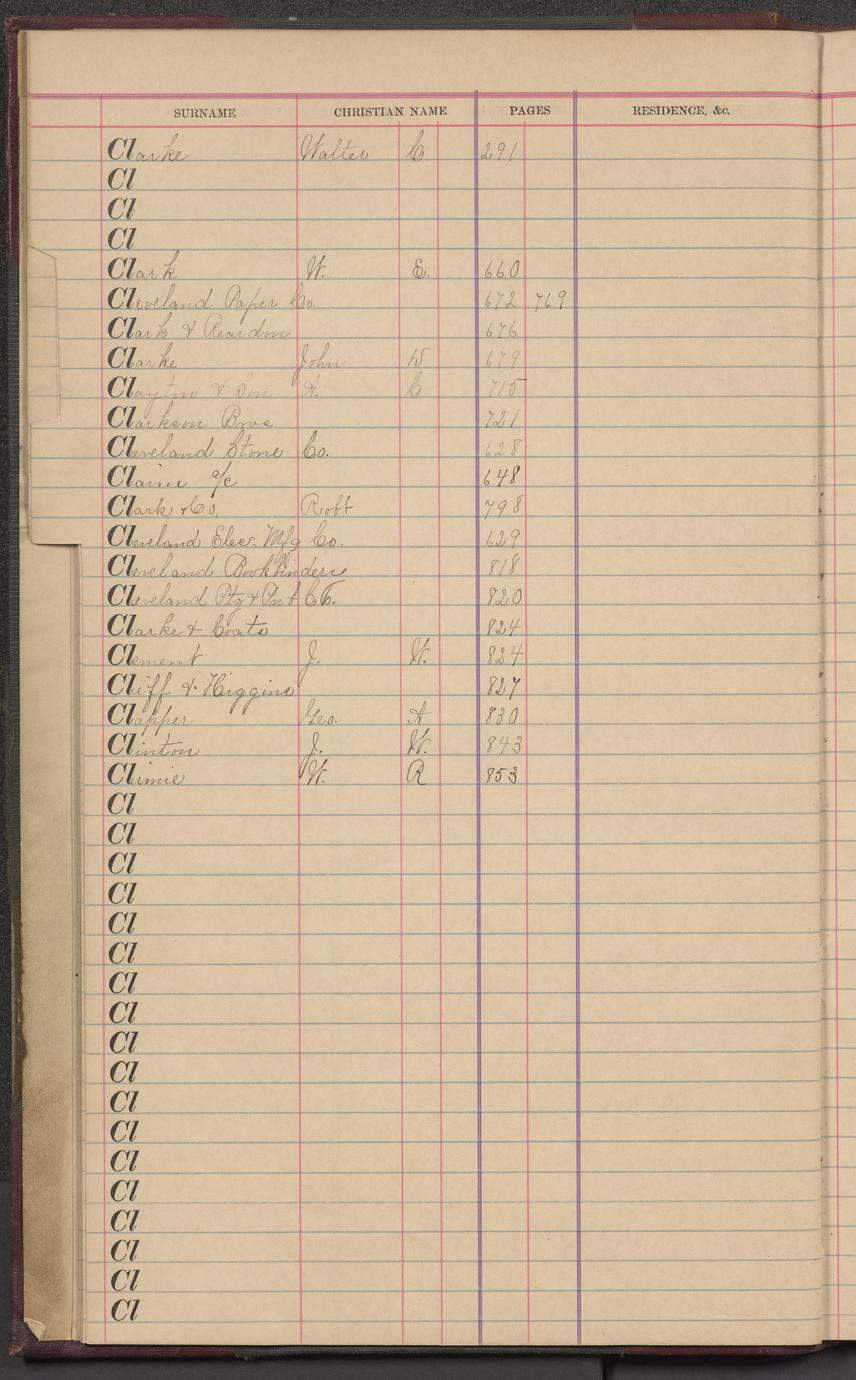 SURNAME CHRISTIAN NAME PAGES RESIDENCE, &c.
Clarke Walter C 291
Cl
Cl
Cl
Clark W. E. 660
Cleveland Paper Co. 672 769
Clark & Reardon 676
Clarke John W 679
Clayton & Son A. C 715
Clarkson Bros 721
Cleveland Stone Co. 628
Claim a/c 648
Clark & Co. Robt 798
Cleveland Elec. Mfg Co. 629
Cleveland Bookbinders 818
Cleveland Ptg & Pub Co. 820
Clarke & Coats 824
Clement J. W. 824
Cliff & Higgins 827
Clapper Geo. A 830
Clinton J. W. 843
Climie W. R 853
Cl
Cl
Cl
Cl
Cl
Cl
Cl
Cl
Cl
Cl
Cl
Cl
Cl
Cl
Cl
Cl
Cl
Cl